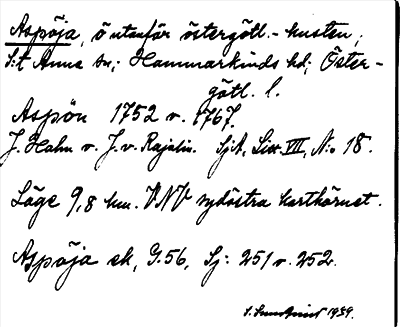 Aspöja, ö utanför östergötl.-kusten,
S:t Anna sn; Hammarkinds hd; Öster-
götl. l.
Aspön 1752 o. 1767.
J. Hahn o. J. v. Rajalin. SjA, Litt. VII, N:o 18.
Läge 9,8 km. VNV sydöstra karthörnet.
Aspöja ek, G.56, Sj: 251 o. 252.
S. Sundqvist 1939.